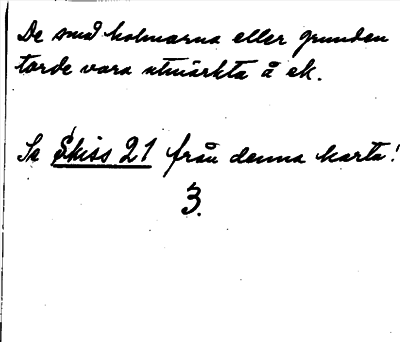 De små holmarna eller grunden
torde vara utmärkta å ek.
Se Skiss 21 från denna karta!
3.